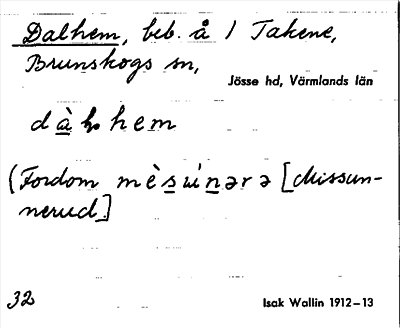 Dalhem, beb. å 1 Takene,
Brunskogs sn,
Jösse hd, Värmlands län
(Fordom mèsúnərə [Missun-
nerud]
32
Isak Wallin 1912–13